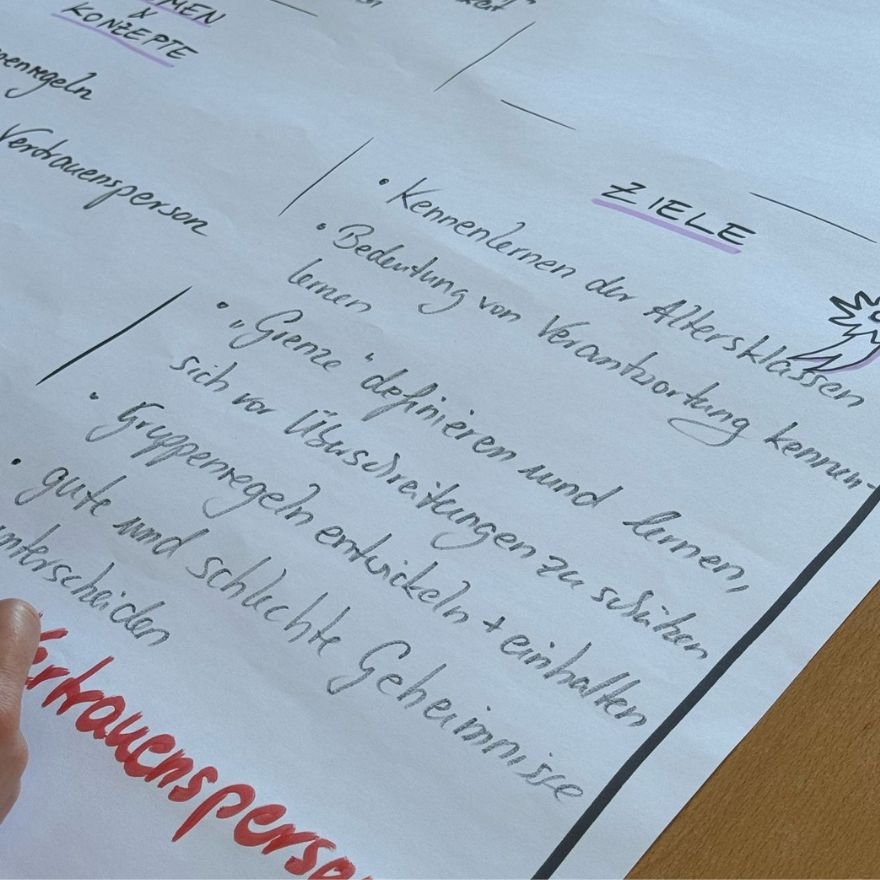 &
KONZEPTE
Vertrauensperson
ZIELE
• Kennenlernen der Altersklassen
• Bedeutung von Verantwortung kennen-
lernen
• „Grenze“ definieren und lernen,
sich vor Überschreitungen zu schützen
• Gruppenregeln entwickeln + einhalten
• gute und schlechte Geheimnisse
unterscheiden